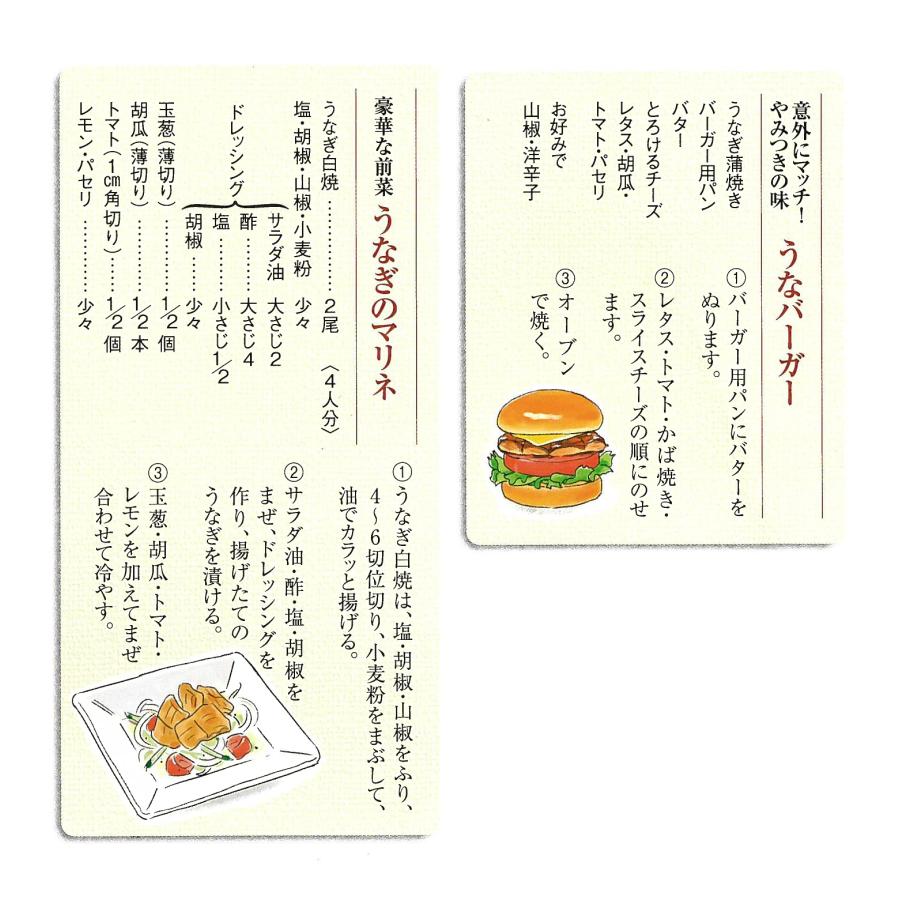 意外にマッチ!
やみつきの味
うなバーガー
うなぎ蒲焼き
バーガー用パン
バター
とろけるチーズ
レタス・胡瓜・
トマト・パセリ
お好みで
山椒・洋辛子
①バーガー用パンにバターを
ぬります。
②レタス・トマト・かば焼き・
スライスチーズの順にのせ
ます。
③オーブン
で焼く。
豪華な前菜 うなぎのマリネ
〈4人分〉
うなぎ白焼…………2尾
塩・胡椒・山椒・小麦粉 少々
ドレッシング
サラダ油 大さじ2
酢………大さじ4
塩………小さじ1/2
胡椒………少々
玉葱(薄切り)…………1/2個
胡瓜(薄切り)…………1/2本
トマト(1cm角切り)……1/2個
レモン・パセリ…………少々
①うなぎ白焼は、塩・胡椒・山椒をふり、
4〜6切位切り、小麦粉をまぶして、
油でカラッと揚げる。
②サラダ油・酢・塩・胡椒を
まぜ、ドレッシングを
作り、揚げたての
うなぎを漬ける。
③玉葱・胡瓜・トマト・
レモンを加えてまぜ
合わせて冷やす。